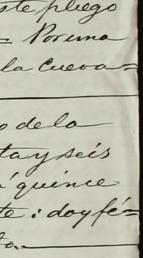 ste pliego
= Por una
la Cueva =
o de la
ta y seis
quince
te: doy fé =
to.